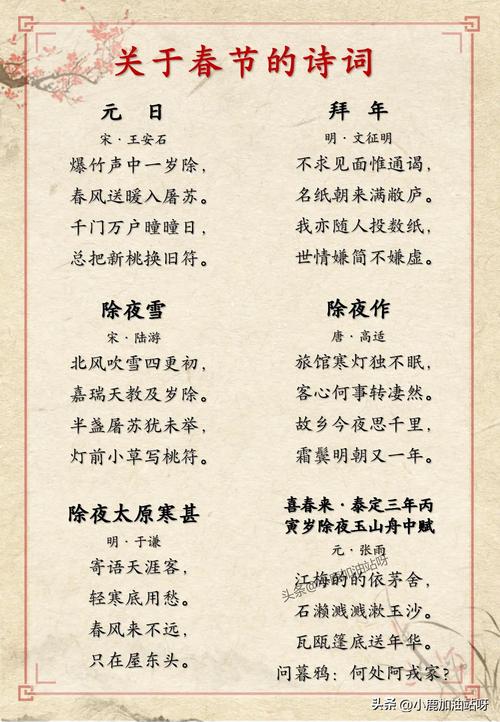 关于春节的诗词
元 日
宋·王安石
爆竹声中一岁除，
春风送暖入屠苏。
千门万户曈曈日，
总把新桃换旧符。
拜 年
明·文征明
不求见面惟通谒，
名纸朝来满敝庐。
我亦随人投数纸，
世情嫌简不嫌虚。
除夜雪
宋·陆游
北风吹雪四更初，
嘉瑞天教及岁除。
半盏屠苏犹未举，
灯前小草写桃符。
除夜作
唐·高适
旅馆寒灯独不眠，
客心何事转凄然。
故乡今夜思千里，
霜鬓明朝又一年。
除夜太原寒甚
明·于谦
寄语天涯客，
轻寒底用愁。
春风来不远，
只在屋东头。
喜春来·泰定三年丙
寅岁除夜玉山舟中赋
元·张雨
江梅的的依茅舍，
石濑溅溅漱玉沙。
瓦瓯篷底送年华。
问暮鸦：何处阿戎家？
头条@小鹿加油站呀
头条@小鹿加油站呀